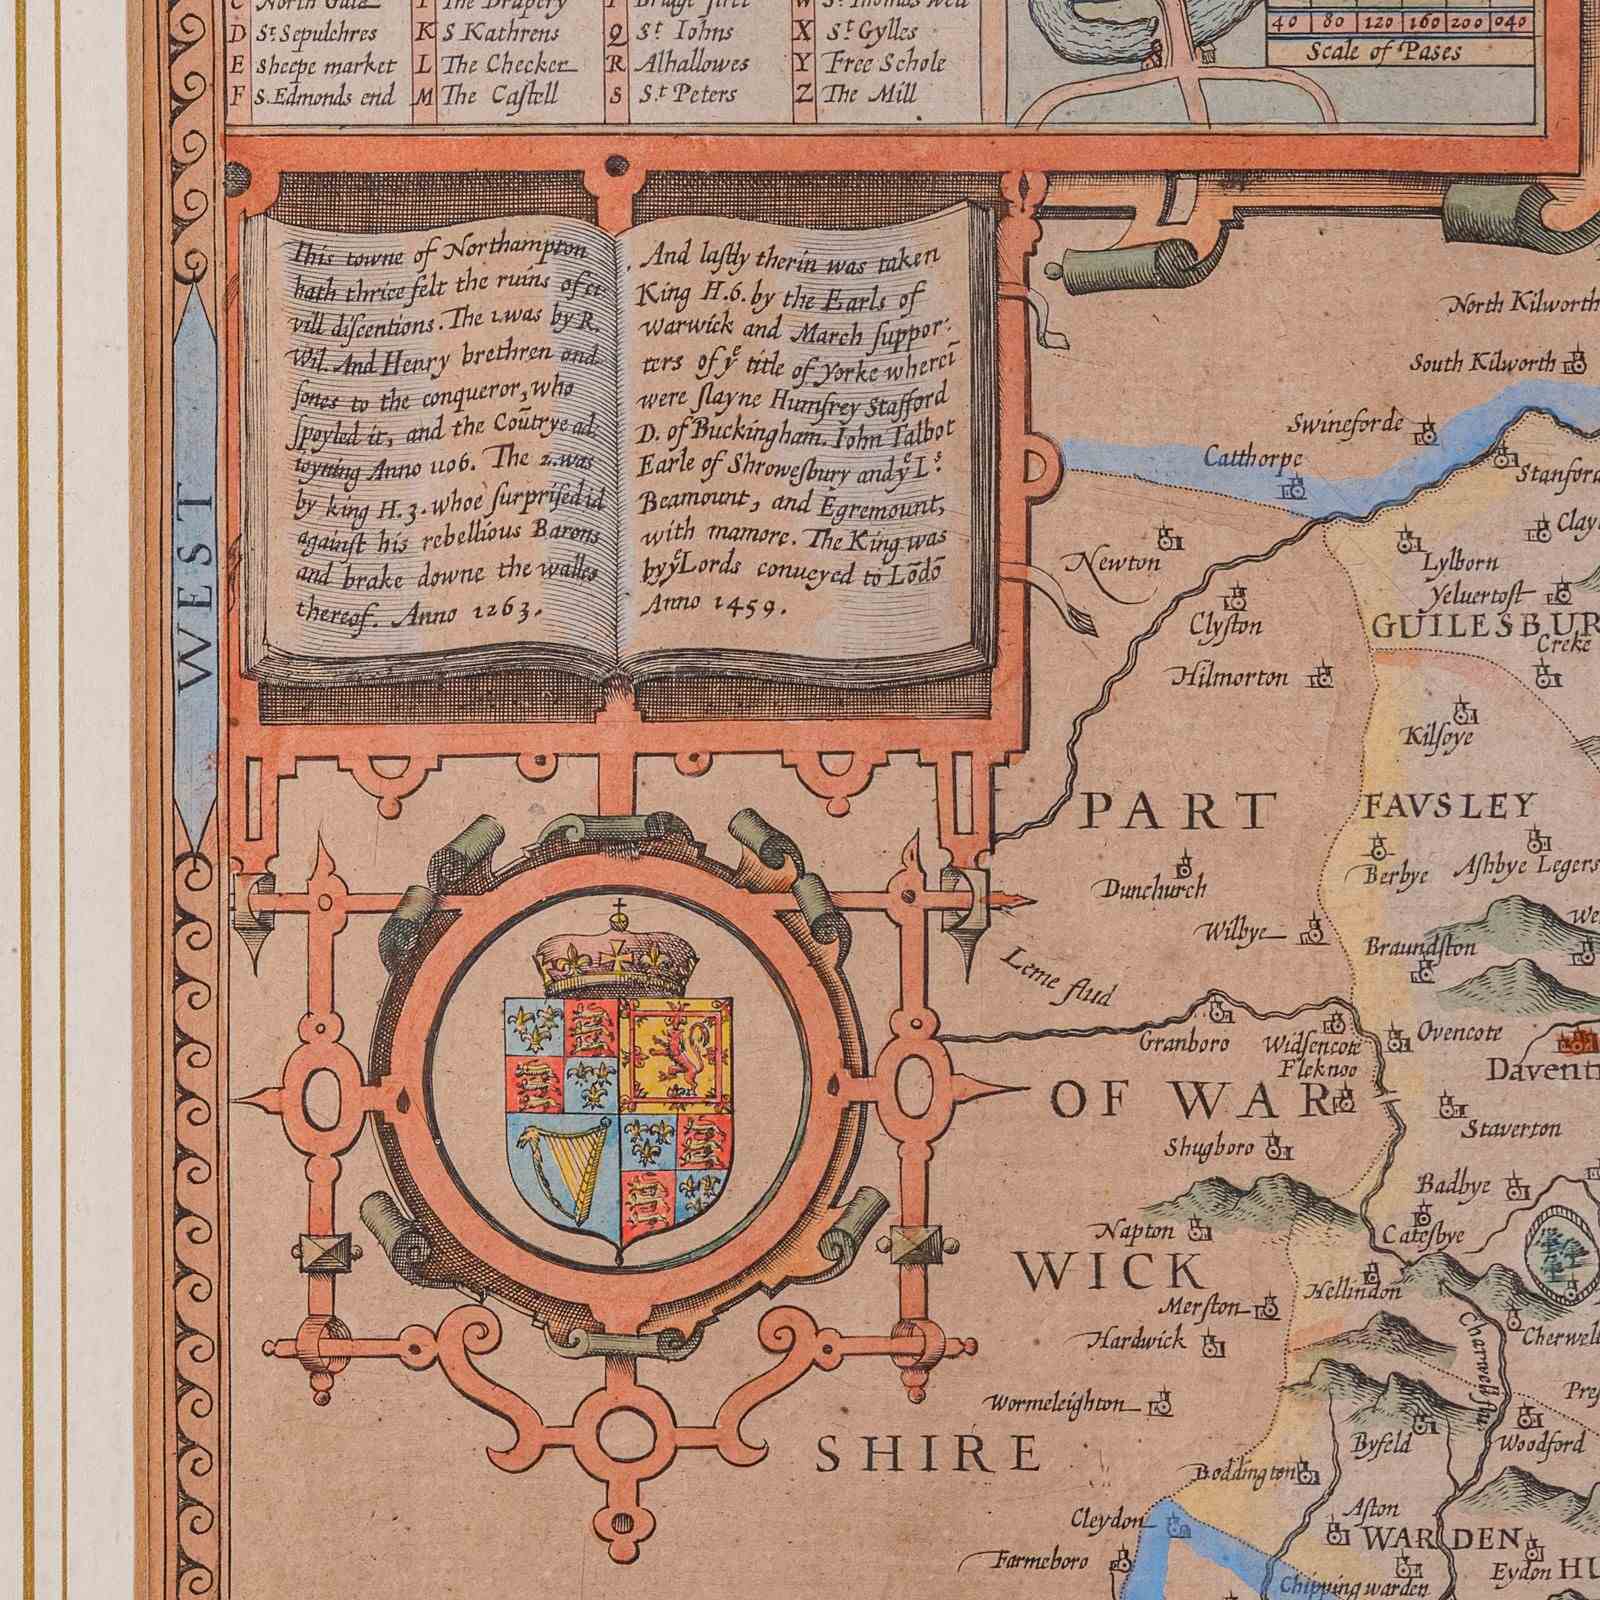 C North Gate I The Drapery P Bridge stret W St. Thomas well
D St Sepulchres K S Kathrens Q St Iohns X St Gylles
E sheepe market L The Checker R Alhallowes Y Free Schole
F S. Edmonds end M The Castell S St Peters Z The Mill
40 80 120 160 200 040
Scale of Pases
This towne of Northampton
hath thrice felt the ruins of ci
vill discentions. The 1. was by R.
Wil. And Henry brethren and
sones to the conqueror, who
spoyled it, and the Coūtrye ad
ioyning Anno 1106. The 2. was
by king H. 3. whoe surprised id
against his rebellious Barons
and brake downe the walles
thereof. Anno 1263.
And lastly therin was taken
King H. 6. by the Earls of
Warwick and March suppor:
ters of yᵉ title of Yorke whereī
were slayne Humfrey Stafford
D. of Buckingham. Iohn Talbot
Earle of Shrowesbury and yᵉ Lˢ:
Beamount, and Egremount,
with mamore. The King was
by yᵉ Lords conueyed to Lōdō
Anno 1459.
WEST
North Kilworth
South Kilworth
Swineforde
Catthorpe
Stanford
Clay
Newton
Lylborn
Yeluertoft
Clyston
GUILESBUR
Creke
Hilmorton
Kilsoye
PART
FAVSLEY
Berbye
Ashbye Legers
Dunchurch
Wilbye
We
Braundston
Leme flud
Granboro
Widsencote
Ovencote
Fleknoo
Davent
OF WAR
Staverton
Shugboro
Badbye
Napton
Catesbye
WICK
Hellindon
Merston
Hardwick
Charwell flu
Cherwell
Wormeleighton
Pre
SHIRE
Byfeld
Woodford
Boddington
Cleydon
Aston
WARDEN
Farmeboro
Eydon
HU
Chipping warden